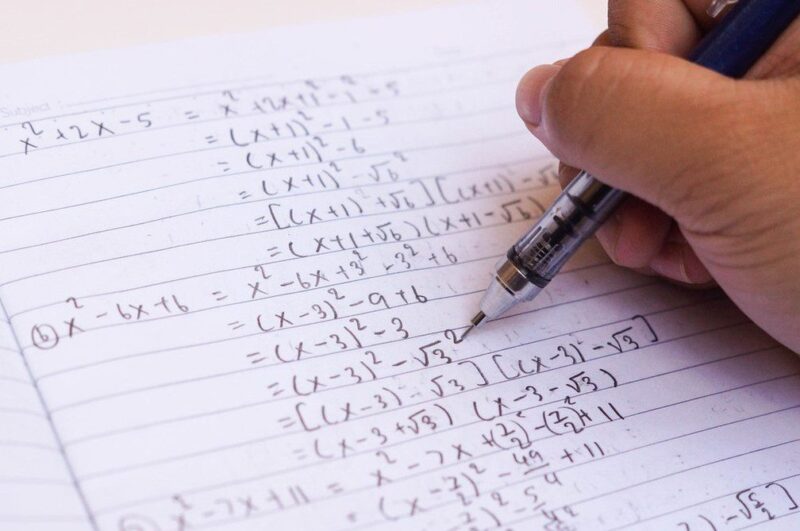 Subject :
x² + 2x - 5 = x² + 2x + 1² - 1² - 5
= (x+1)² - 1 - 5
= (x+1)² - 6
= (x+1)² - √6²
= [(x+1)² + √6] [(x+1)² - √6
= (x+1+√6) (x+1-√6)
ⓑ x² - 6x + 6 = x² - 6x + 3² - 3² + 6
= (x-3)² - 9 + 6
= (x-3)² - 3
= (x-3)² - √3²
= [(x-3) - √3] [(x-3)² - √3]
= (x-3+√3) (x-3-√3)
x² - 7x + 11 = x² - 7x + (7/2)² - (7/2)² + 11
= (x-7/2)² - 49/4 + 11
)² - 5/4
- √5/2)]